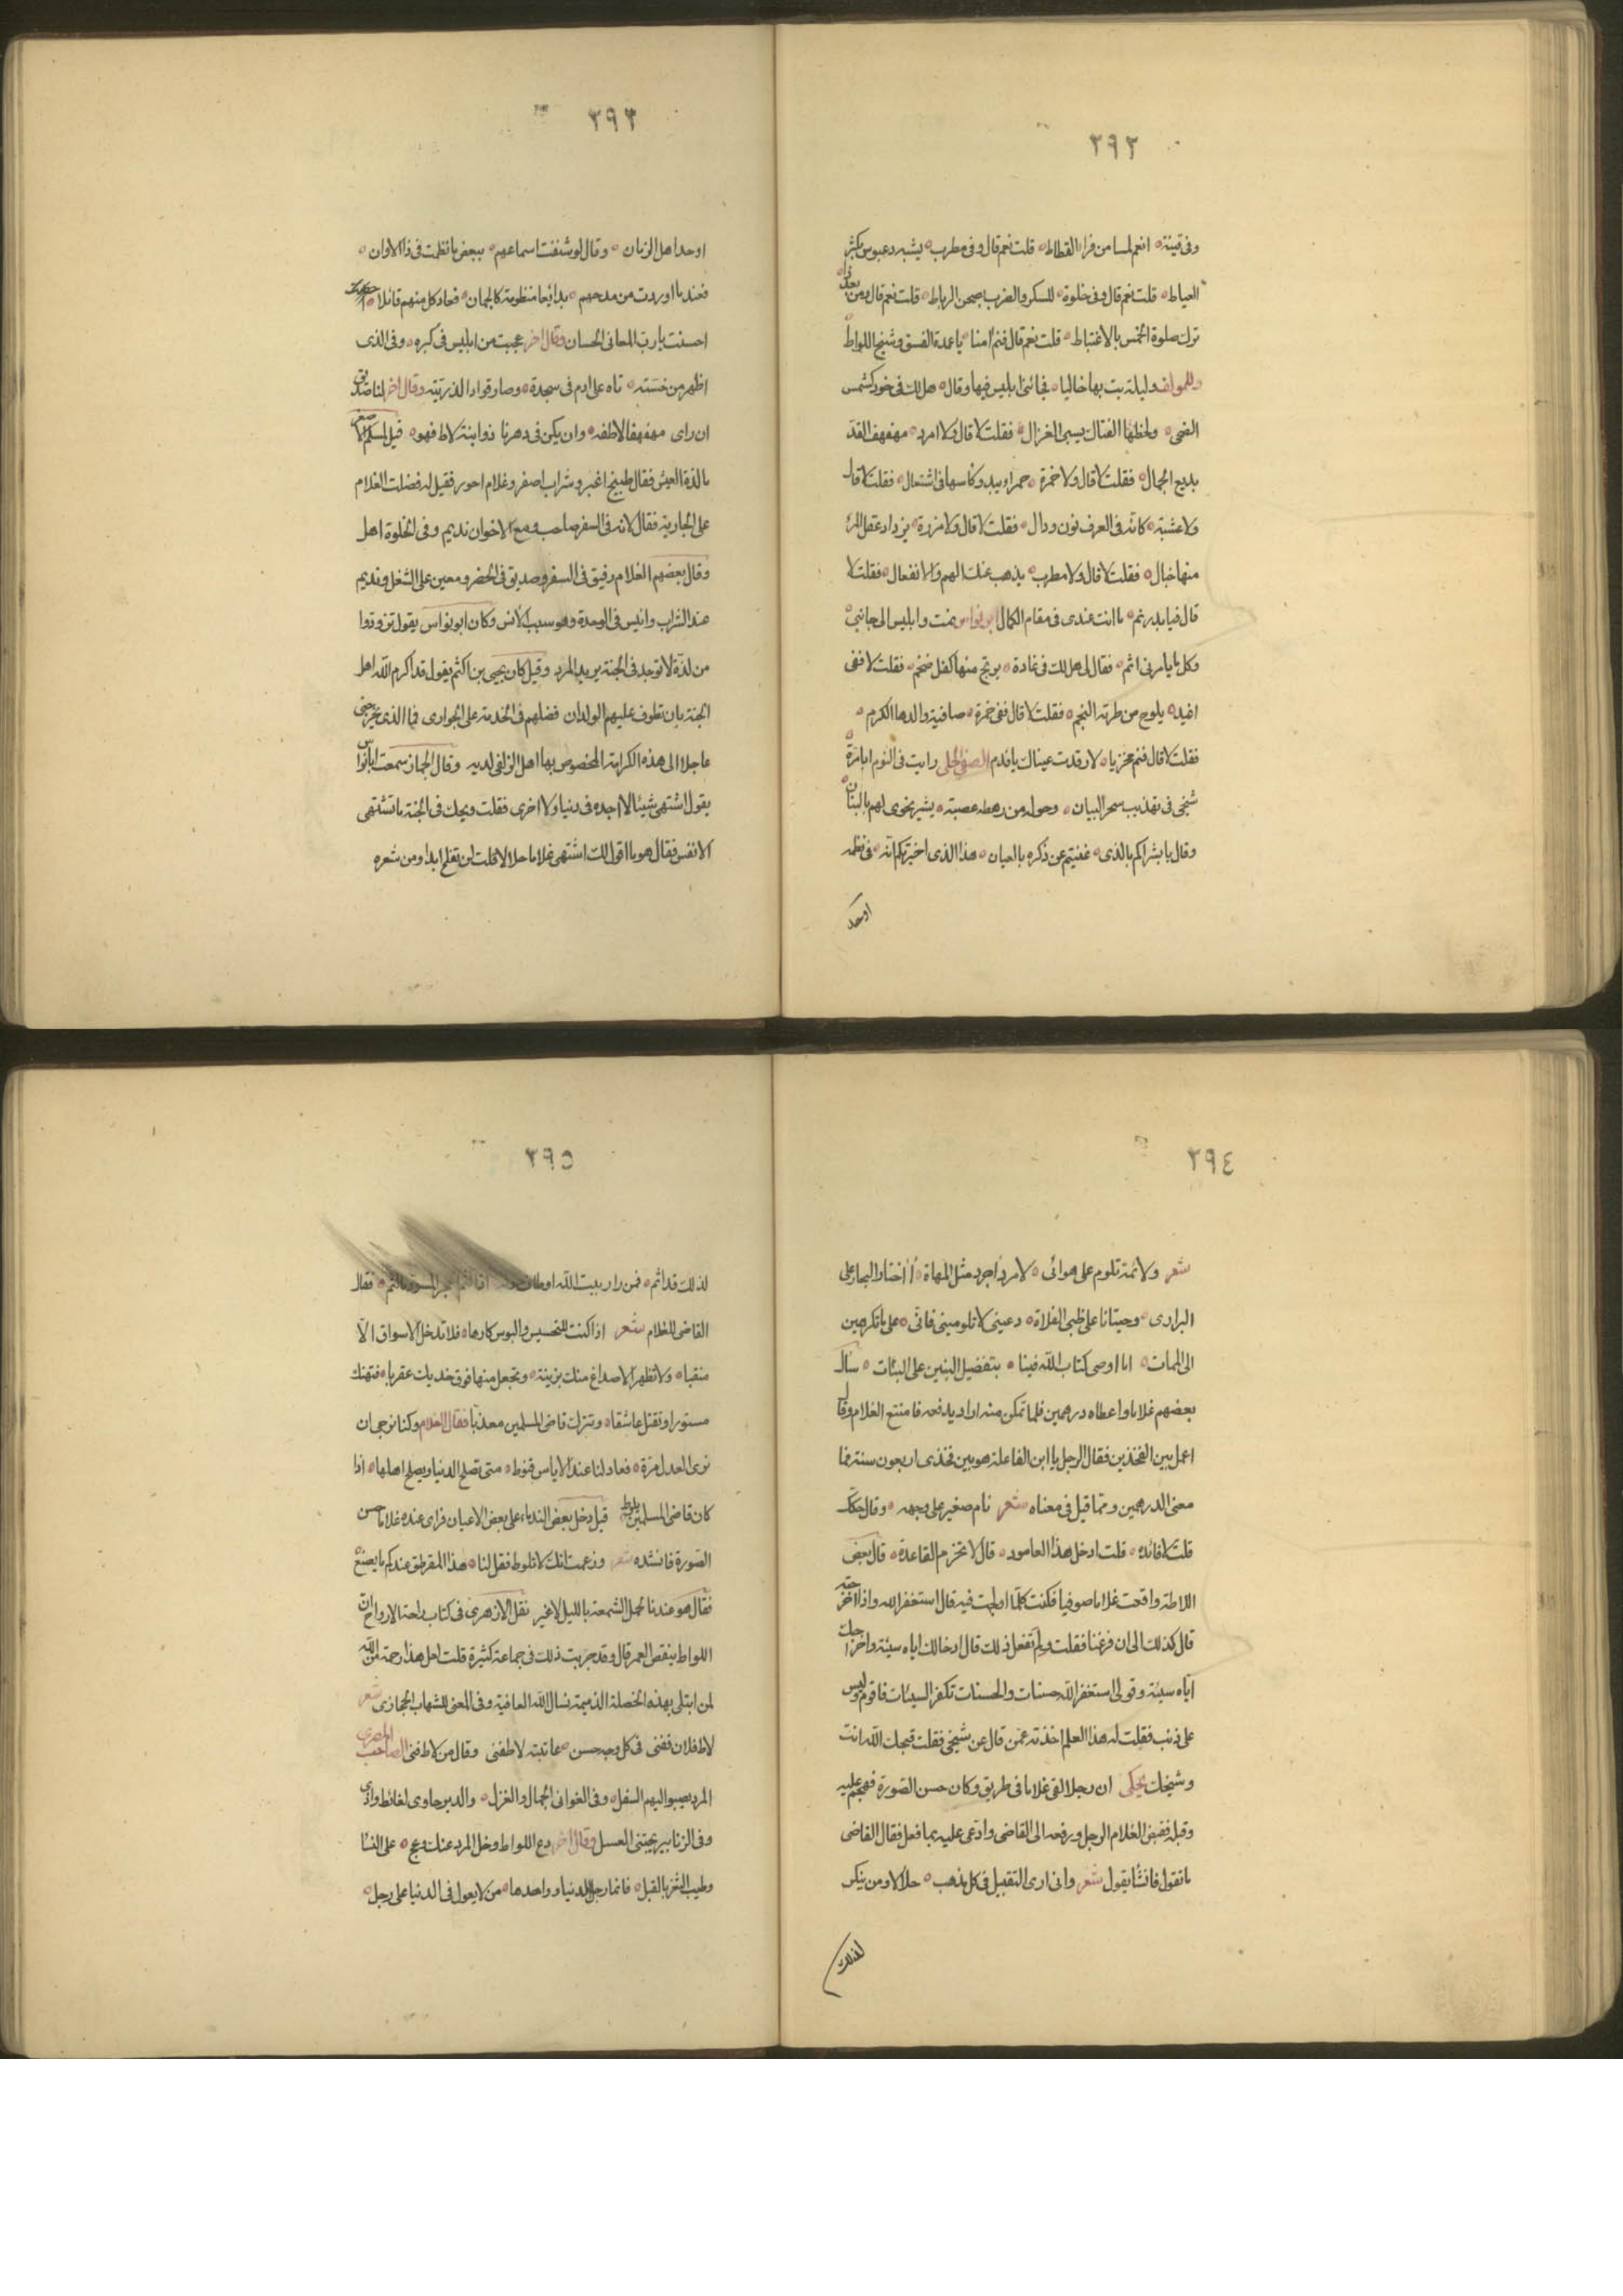 ٢٩٢
وفى قينة انعم لمسا من فراء القطاط قلت نعم قال وفى مطرب يشبه دعبوس بكثر
العياط قلت نعم قال وفى خلوة للسكر والضرب بصحن الرباط قلت نعم قال ومن بعد ذا
ترك صلوة الخمس بالاغتباط قلت نعم قال فنم امنا يا عدة الفسق وشيخ اللواط
وللمواف وليلة بت بها خاليا فجائنى ابليس فيها وقال هل لك فى خود كشمس
الضحى ولحظها الفتال يسبى الغزال فقلت لا قال ولا امرد مهفهف القد
بديع الجمال فقلت لا قال ولا خمرة حمرا ويبدو كاسها فى اشتعال فقلت لا قال
ولا عشبة كانه فى العرف نون ودال فقلت لا قال ولا مزرة يزداد عقل المرء
منها خبال فقلت لا قال ولا مطرب يذهب عنك الهم والانفعال فقلت لا
قال فيا بدر نم ما انت عندى فى مقام الكمال ابو نواس نمت وابليس الى جانبى
وكل ما يامرنى اثم فقال لى هل لك فى غادة يرتج منها كفل ضخم فقلت لا ففى
اغيد يلوح من طرته النجم فقلت لا قال ففى خمرة صافية والدها الكرم
فقلت لا قال فنم مخزيا لا رقدت عيناك يا فدم الصفى الحلى رايت فى النوم ابا مرة
شيخى فى تهذيب سحر البيان وحوله من رهطه عصبة يشير نحوى لهم بالبنان
وقال يا بشراكم بالذى غنيتم عن ذكره بالعيان هذا الذى اخبرتكم انه فى نظمه
اوحد
٢٩٣
اوحد اهل الزمان وقال لو شنفت اسماعهم ببعض ما نظمت فى ذا الاوان
فعندما اوردت من مدحهم بدائعا منظومة كالجمان فعاد كل منهم قائلا
احسنت يا رب المعانى الحسان وقال اخر عجبت من ابليس فى كبره وفى الذى
اظهر من خسته تاه على ادم فى سجدة وصار قوادا لذريته وقال اخر لنا صديق
ان راى مهفهفا لاطفه وان يكن فى دهرنا ذو ابنة لاط فهو قيل لمسلم الاصغر
ما لذة العيش فقال طبيخ اغبر وشراب اصفر وغلام احور فقيل له فضلت الغلام
على الجارية فقال لانه فى السفر صاحب ومع الاخوان نديم وفى الخلوة اهل
وقال بعضهم الغلام رفيق فى السفر وصديق فى الحضر ومعين على الشغل ونديم
عند الشراب وانيس فى الوحدة وهو سبب الانس وكان ابو نواس يقول تزودوا
من لذة لا توجد فى الجنة يريد المرد وقيل كان يحيى بن اكثم يقول قد اكرم الله اهل
الجنة بان تطوف عليهم الولدان فضلهم فى الخدمة على الجوارى فما الذى يخرجنى
عاجلا الى هذه الكرامة المخصوص بها اهل الزلفى لديه وقال الجماز سمعت ابا نواس
يقول اشتهى شيئا لا اجده فى دنيا ولا اخرى فقلت ويحك فى الجنة ما تشتهى
الانفس فقال هو ما اقول لك اشتهى غلاما حلالا قلت لن تفلح ابدا ومن شعره
٢٩٤
شعر ولائمة تلوم على هوائى لامرد اجرد مثل المهاة أاختار البحار على
البرارى وحيتانا على ظبى الفلاة دعينى لا تلومينى فانى على ما تكرهين
الى الممات اما اوصى كتاب الله فينا بتفضيل البنين على البنات سأل
بعضهم غلاما واعطاه درهمين فلما تمكن منه اراد يدفعه فامتنع الغلام وقال
اعمل بين الفخذين فقال الرجل يا ابن الفاعلة هو بين فخذى اربعون سنة فما
معنى الدرهمين ومما قيل فى معناه شعر نام صغير على وجهه وقال حكك
قلت لا فائده قلت ادخل هذا العامود قال لا تخزم القاعدة قال بعض
اللاطة واقعت غلاما صوفيا فكنت كلما اولجت فيه قال استغفر الله واذا اخرجته
قال كذلك الى ان فرغنا فقلت ولم تفعل ذلك قال ادخالك اياه سيئة واخراجك
اياه سيئة وقولى استغفر الله حسنات والحسنات تكفر السيئات فاقوم وليس
على ذنب فقلت له هذا العلم اخذته عمن قال عن شيخى فقلت قبحك الله انت
وشيخك يحكى ان رجلا لقى غلاما فى طريق وكان حسن الصورة فهجم عليه
وقبله فقبض الغلام الرجل ورفعه الى القاضى وادعى عليه بما فعل فقال القاضى
ما تقول فانشا يقول شعر وانى ارى التقبيل فى كل مذهب حلالا ومن ينكر
لذلك
٢٩٥
لذلك قد اثم فمن زار بيت الله فقال
القاضى للغلام شعر اذا كنت للتحسيس والبوس كارها فلا تدخل الاسواق الا
منقبا ولا تظهر الاصداغ منك بزينة وتجعل منها فوق خديك عقربا فتهتك
مستورا وتقتل عاشقا وتترك قاضى المسلمين معذبا فقال الغلام وكنا نرجى ان
نرى العدل مرة فعاد لنا عند الاياس قنوط متى تصلح الدنيا ويصلح اهلها اذا
كان قاضى المسلمين يلوط قيل دخل بعض الندماء على بعض الاعيان فراى عنده غلاما حسن
الصورة فانشده شعر وزعمت انك لا تلوط فقل لنا هذا المقرطق عندكم ما يصنع
فقال هو عندنا لحمل الشمعة بالليل لا غير نقل الازهرى فى كتاب راحة الارواح ان
اللواط ينقص العمر قال وقد جربت ذلك فى جماعة كثيرة قلت لعل هذا رحمة من الله
لمن ابتلى بهذه الخصلة الذميمة نسال الله العافية وفى المعنى للشهاب الحجازى شعر
لاط فلان ففنى فى كل وجه حسن عاتبته لاطفنى وقال من لاط فنى الصاحب المصرى
المرد يصبو اليهم السفل وفى الغوانى الجمال والغزل والدبر حاوى لغائط واذى
وفى الزنابير يجتنى العسل وقال اخر دع اللواط وخل المرد عنك وعج على النسا
وطيب الثغر بالقبل فانما رجل الدنيا وواحدها من لا يعول فى الدنيا على رجل